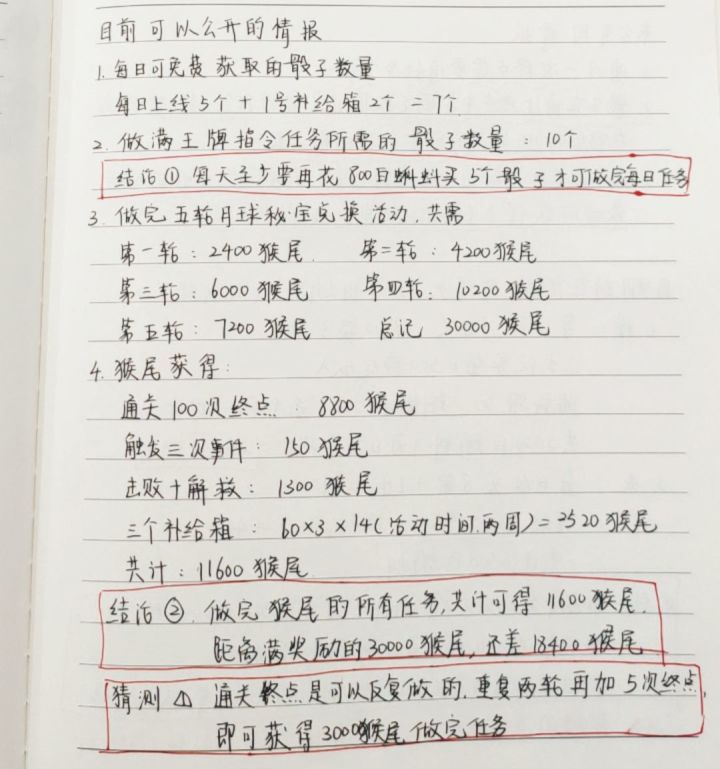 目前可以公开的情报
1. 每日可免费获取的骰子数量
每日上线5个+1号补给箱2个=7个
2. 做满王牌指令任务所需的骰子数量：10个
结论① 每天至少要再花800日蝌蚪买5个骰子才可做完每日任务
3. 做完五轮月球秘宝兑换活动，共需
第一轮：2400猴尾 第二轮：4200猴尾
第三轮：6000猴尾 第四轮：10200猴尾
第五轮：7200猴尾 总记 30000猴尾
4. 猴尾获得：
通关100次终点 8800猴尾
触发三次事件：150猴尾
击败+解救：1300猴尾
三个补给箱：60×3×14(活动时间两周)=2520猴尾
共计：11600猴尾
结论②. 做完猴尾的所有任务,共计可得11600猴尾.
距离满奖励的30000猴尾,还差18400猴尾
猜测△ 通关终点是可以反复做的.重复两轮再加5次终点,
即可获得30000猴尾做完任务